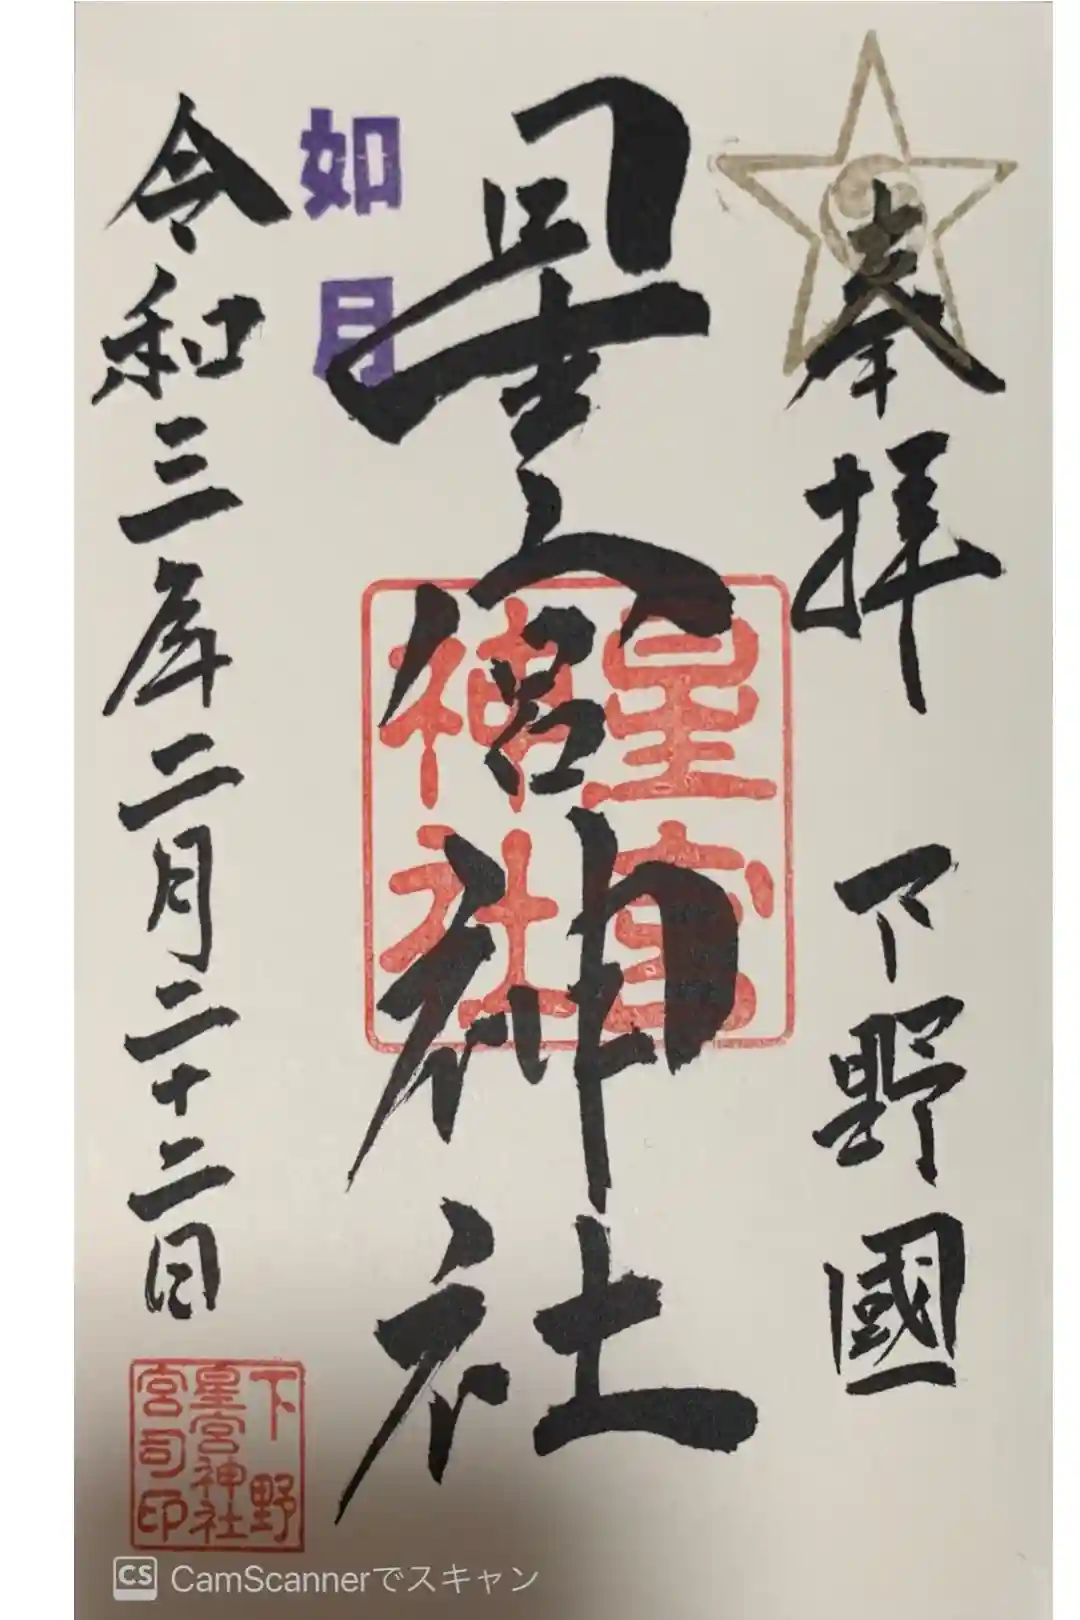 奉拝 下野國
星宮神社
星宮神社
如月
令和三年二月二十二日
下野
星宮神社
宮司印
CS CamScannerでスキャン